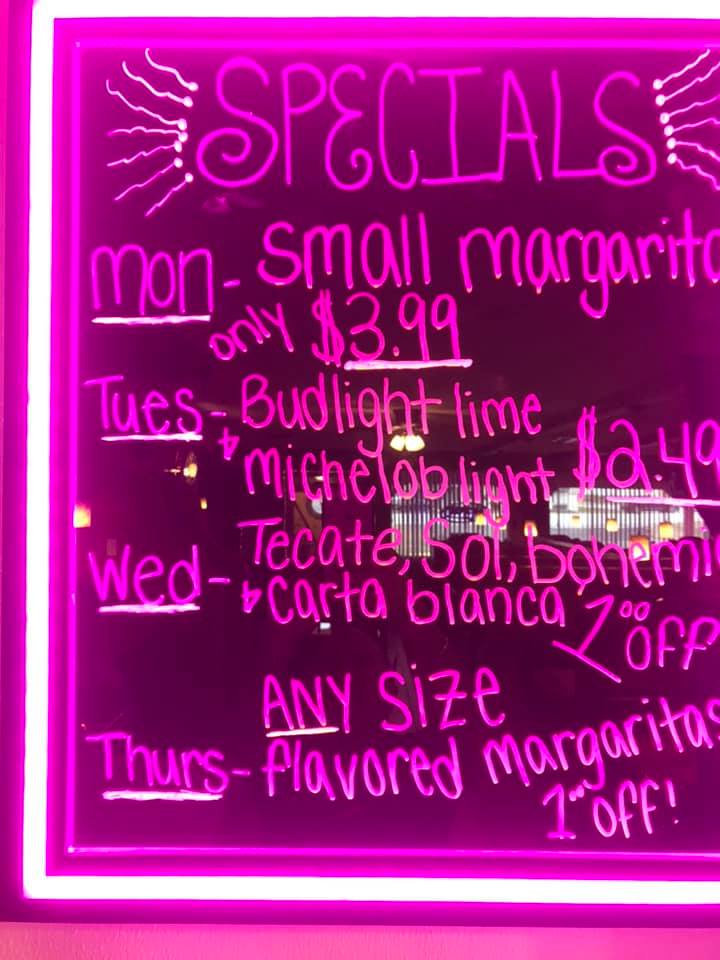 SPECIALS
Mon - Small margarita
only $3.99
Tues - Budlight lime
+ Micheloblight $2.49
Wed - Tecate, Sol, bohemi
+ Carta blanca 1.00 off
ANY Size
Thurs - flavored margaritas
1.00 off!